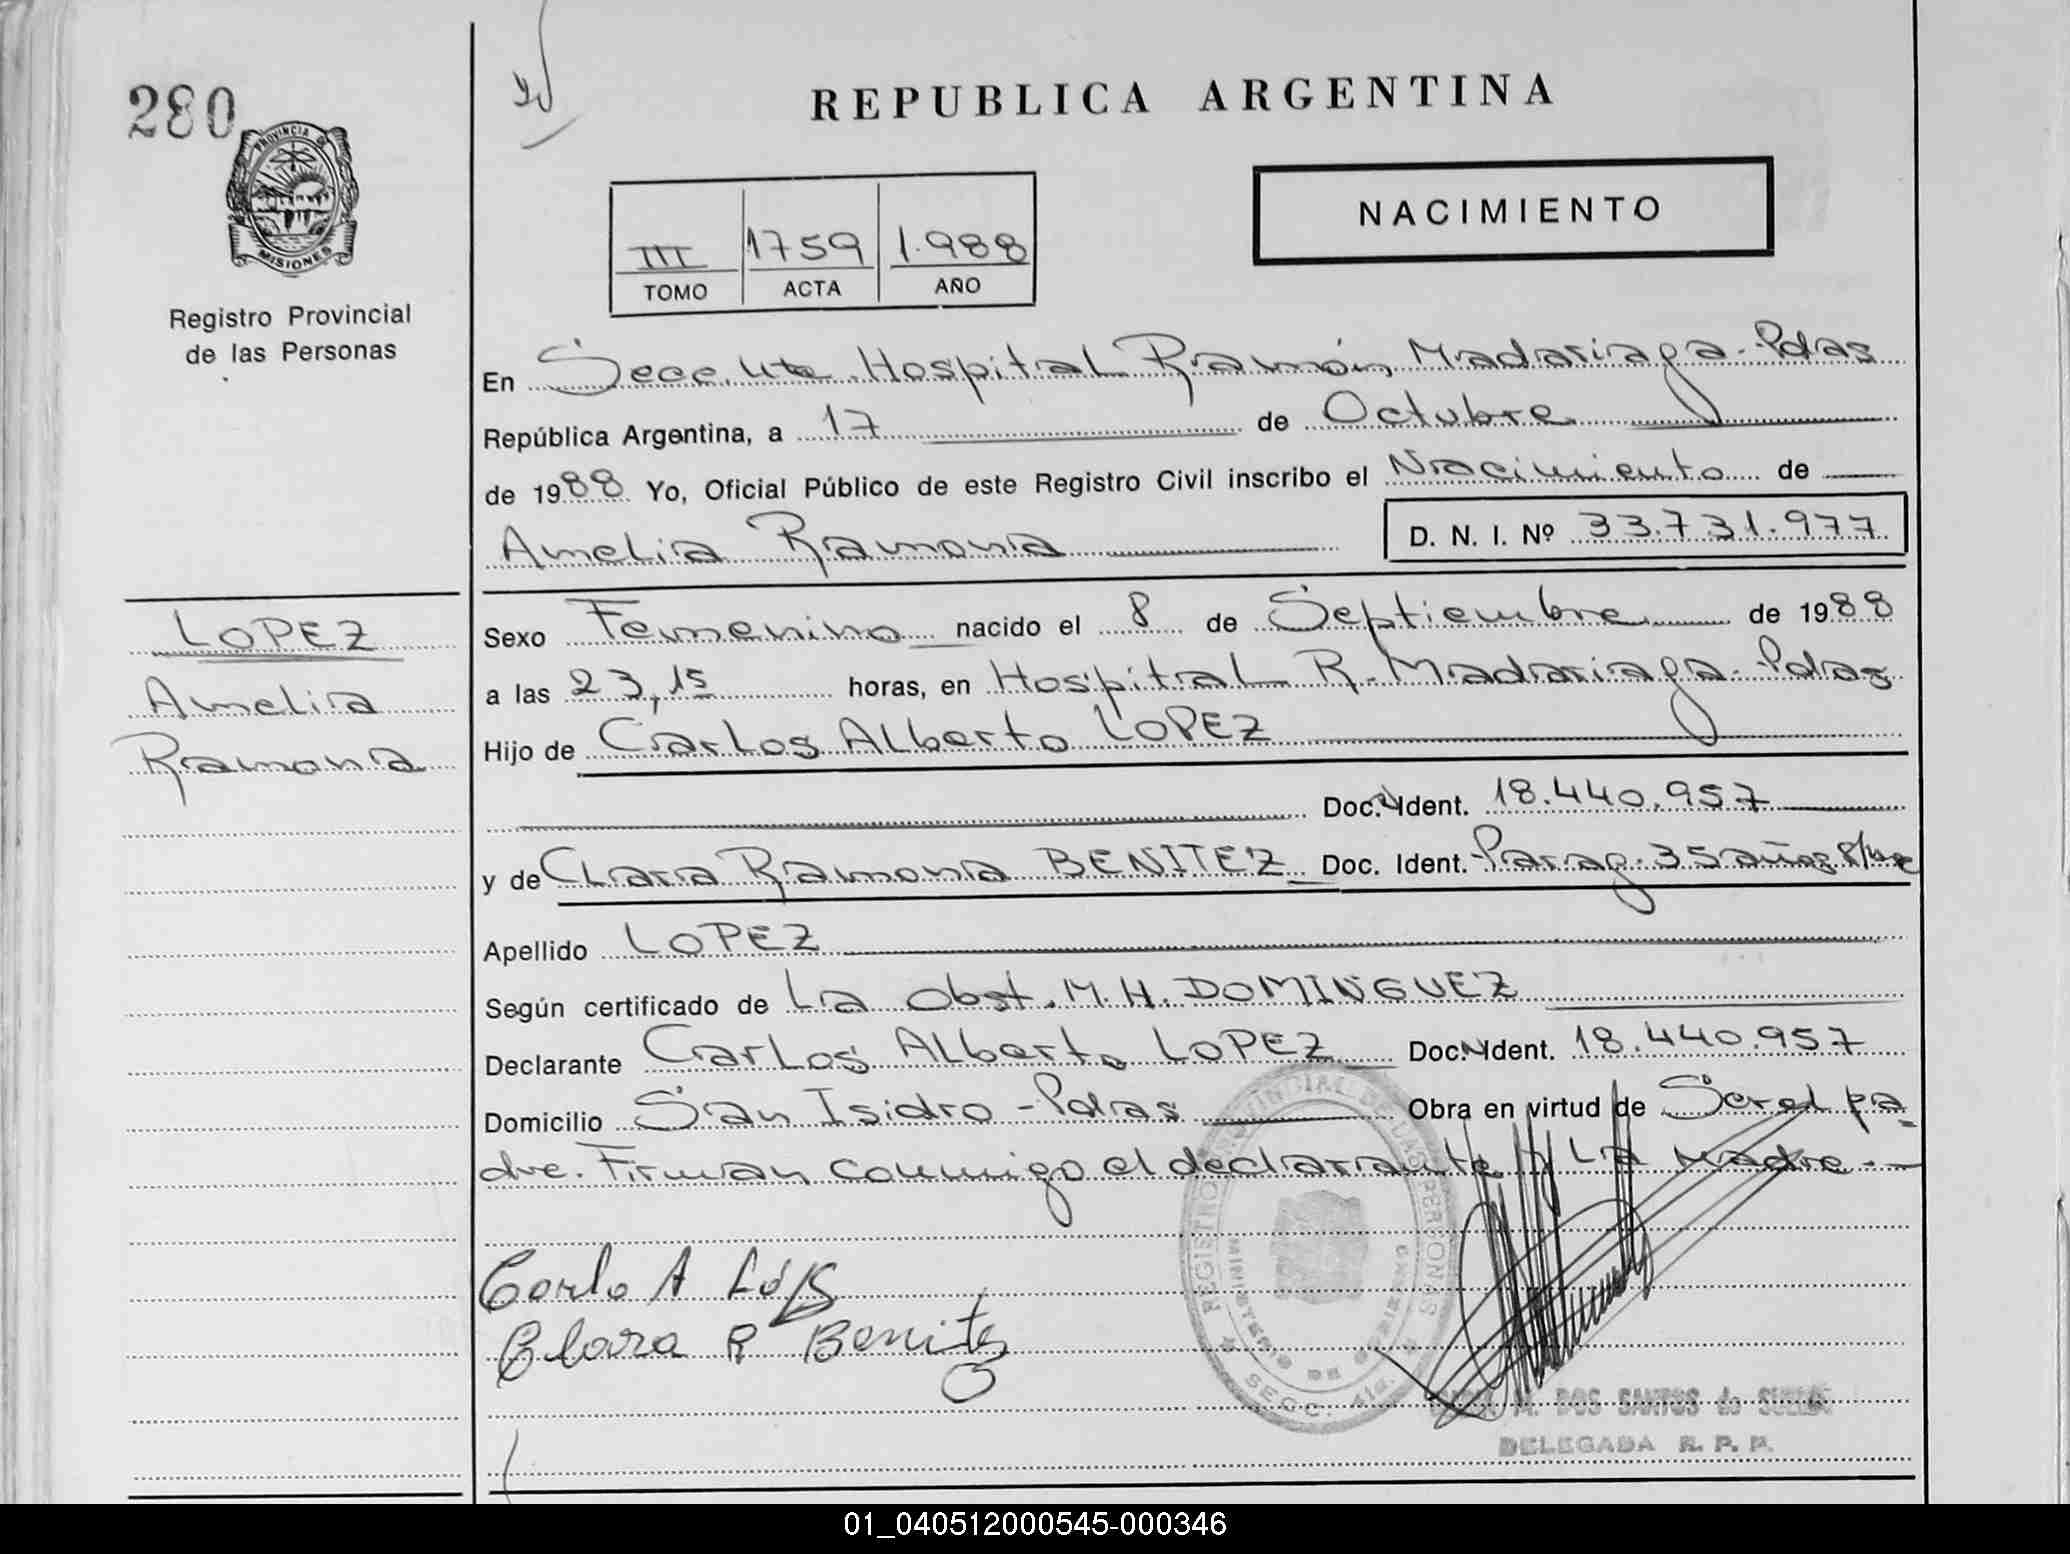 280
REPUBLICA ARGENTINA
PROVINCIA DE
MISIONES
Registro Provincial
de las Personas
III 1759 1.988
TOMO ACTA AÑO
NACIMIENTO
En Secc. 4ta. Hospital Ramón Madariaga-Pdas
República Argentina, a 17 de Octubre
de 1988 Yo, Oficial Público de este Registro Civil inscribo el Nacimiento de
Amelia Ramona D. N. I. Nº 33.731.977
LOPEZ
Amelia
Ramona
Sexo Femenino nacido el 8 de Septiembre de 1988
a las 23,15 horas, en Hospital R. Madariaga-Pdas
Hijo de Carlos Alberto LOPEZ
Doc. N Ident. 18.440.957
y de Clara Ramona BENITEZ Doc. Ident. Parag. 35 años
Apellido LOPEZ
Según certificado de La Obst. M. H. DOMINGUEZ
Declarante Carlos Alberto LOPEZ Doc. N Ident. 18.440.957
Domicilio San Isidro - Pdas Obra en virtud de Ser el pa-
dre. Firman conmigo el declarante y La Madre.-
Carlo A López
Clara R Benitez
REGISTRO PROVINCIAL DE LAS PERSONAS
MINISTERIO DE GOBIERNO
SECC. 4ta.
M. DOS SANTOS de
DELEGADA R. P. P.
01_040512000545-000346